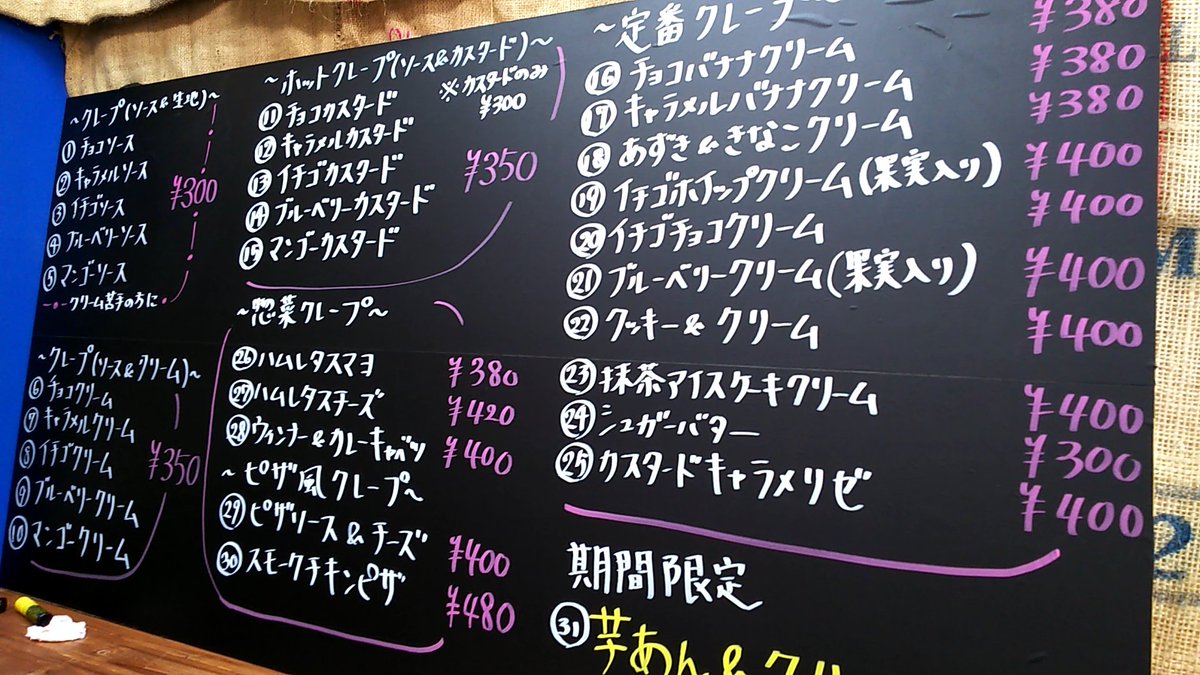 ~クレープ(ソース&生地)~
① チョコソース
② キャラメルソース
③ イチゴソース
④ ブルーベリーソース
⑤ マンゴーソース
¥300
クリーム苦手の方に
~クレープ(ソース&クリーム)~
⑥ チョコクリーム
⑦ キャラメルクリーム
⑧ イチゴクリーム
⑨ ブルーベリークリーム
⑩ マンゴークリーム
¥350
~ホットクレープ(ソース&カスタード)~
※カスタードのみ
¥300
⑪ チョコカスタード
⑫ キャラメルカスタード
⑬ イチゴカスタード
⑭ ブルーベリーカスタード
⑮ マンゴーカスタード
¥350
~惣菜クレープ~
㉖ ハムレタスマヨ ¥380
㉗ ハムレタスチーズ ¥420
㉘ ウィンナー&カレーキャベツ ¥400
~ピザ風クレープ~
㉙ ピザソース&チーズ ¥400
㉚ スモークチキンピザ ¥480
~定番クレープ~
¥380
⑯ チョコバナナクリーム ¥380
⑰ キャラメルバナナクリーム ¥380
⑱ あずき&きなこクリーム ¥400
⑲ イチゴホイップクリーム(果実入り) ¥400
⑳ イチゴチョコクリーム ¥400
㉑ ブルーベリークリーム(果実入り) ¥400
㉒ クッキー&クリーム
㉓ 抹茶アイスケーキクリーム ¥400
㉔ シュガーバター ¥300
㉕ カスタードキャラメリゼ ¥400
期間限定
㉛ 芋あん&クリ
2